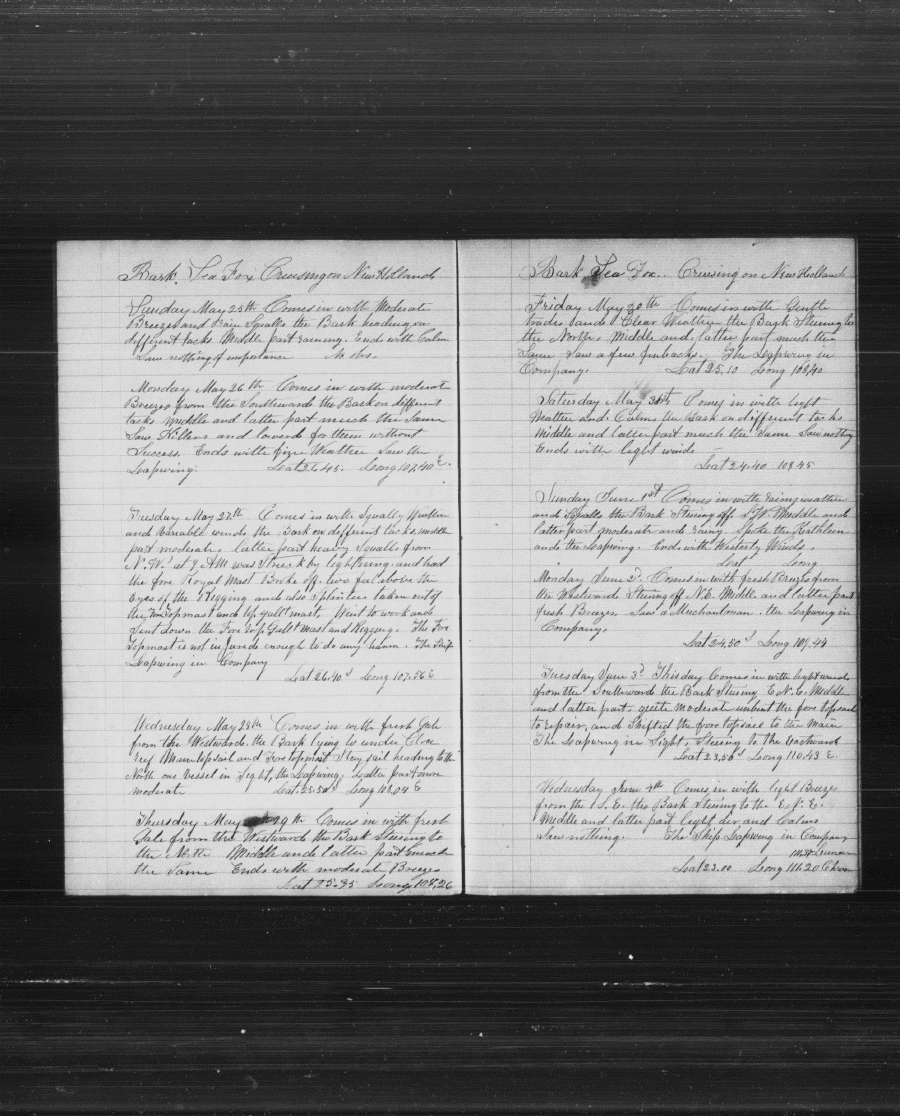 Bark. Sea Fox Cruising on New Holland
Sunday May 25th Comes in with Moderate
Breezes and Rain Squalls the Bark heading on
different tacks Middle Part raining. Ends with Calm
Saw nothing of importance No obs.
Monday May 26th Comes in with moderate
Breezes from the Southward the Bark on different
tacks middle and latter part much the same
Saw Killers and lowerd for them without
Success. Ends with fine Weather Saw the
Leapwing. Lat 26.43. Long 107,40 E.
Tuesday May 27th Comes in with Squally Weather
and variable winds the Bark on different tacks, middle
part moderate, latter part heavy Squalls from
N.W. at 9 AM was Struck by lightning and had
the fore Royal Mast Broke off two feet above the
Eyes of the Rigging and also Splinters taken out of
the Fore Topmast and Top Gallt mast, Went to work and
Sent down the Fore Top Gallt Mast and Rigging. The Fore
Topmast is not injured enough to do any harm. The Ship
Leapwing in Company
Lat 26.40 S Long 107.36 E
Wednesday May 28th Comes in with fresh Gale
from the Westward, the Bark lying to under Close
reef Main topsail and Foretopmast Stay sail heading to the
North one vessel in Sight, the Leapwing Latter part more
moderate Lat. 25.50 S Long 108,04 E
Thursday May 29th Comes in with fresh
Gale from the Westward the Bark Steering to
the North Middle and latter part much
the Same Ends with moderate Breezes
Lat 25-35 Long 108,26
Bark Sea Fox.. Cruising on New Holland
Friday May 30th Comes in with Gentle
trades and Clear Weather the Bark Steering to
the North Middle and latter part much the
Same Saw a few finbacks. The Leapwing in
Company. Lat 25,10 Long 108,40
Saturday May 31st Comes in with light
Weather and Calms the Bark on different tacks
Middle and latter part much the Same Saw nothing
Ends with light winds
Lat 24.40 108.45
Sunday June 1st Comes in with rainy weather
and Squalls the Bark Steering off Middle and
latter part moderate and rainy Spoke the Kathleen
and the Leapwing. Ends with Westerly Winds.
Lat Long
Monday June 2d. Comes in with fresh Breezes from
the Westward Steering off N.E. Middle and latter part
fresh Breezes Saw a Merchantman. the Leapwing in
Company.
Lat 24,50 S Long 109,44
Tuesday June 3d This day Comes in with light winds
from the Southward the Bark Steering E.N.E. Middle
and latter part, quite moderate unbent the fore topsail
to repair, and Shifted the fore topsail to the Main
The Leapwing in Sight, Steering to the Eastward
Lat 23,50 S Long 110.43 E.
Wednesday June 4th Comes in with light Breeze
from the S.E. the Bark Steering to the E.N.E.
Middle and latter part light air and Calms
Saw nothing. The Ship Leapwing in Company
Lat 23.00 Long 111.20 Chron